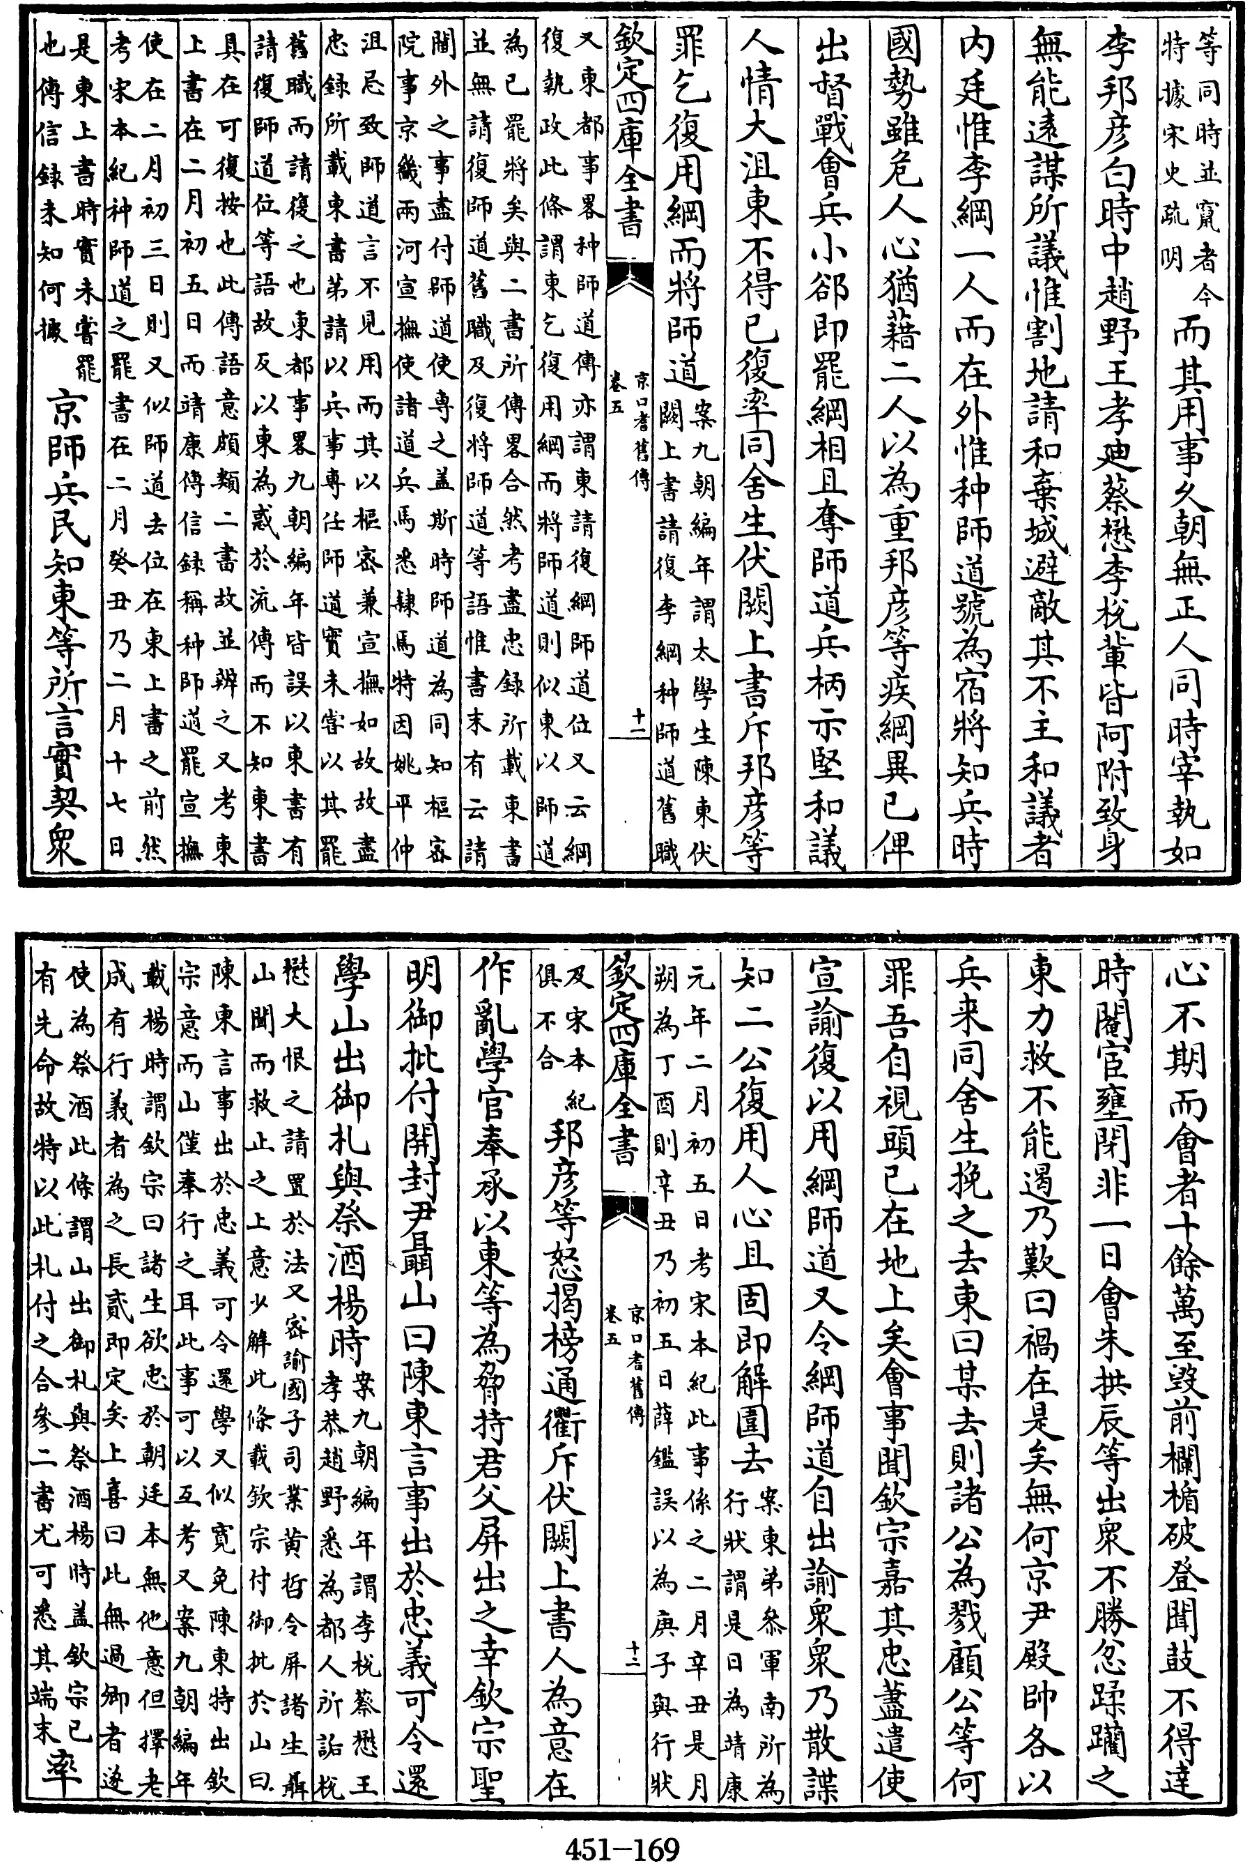 等同時並竄者今
特據宋史疏明
而其用事久朝無正人同時宰執如
李邦彦白時中趙野王孝廸蔡懋李梲輩皆阿附致身
無能遠謀所議惟割地請和棄城避敵其不主和議者
内廷惟李綱一人而在外惟种師道號為宿將知兵時
國勢雖危人心猶藉二人以為重邦彦等疾綱異已俾
出督戰會兵小郤即罷綱相且奪師道兵柄示堅和議
人情大沮東不得已復率同舍生伏闕上書斥邦彦等
罪乞復用綱而將師道
案九朝編年謂太學生陳東伏
闕上書請復李綱种師道舊職
欽定四庫全書
京口耆舊傳
卷五
十一
又東都事畧种師道傳亦謂東請復綱師道位又云綱
復執政此條謂東乞復用綱而將師道則似東以師道
為已罷將矣與二書所傳畧合然考盡忠録所載東書
並無請復師道舊職及復將師道等語惟書末有云請
閫外之事盡付師道使專之盖斯時師道為同知樞密
院事京畿兩河宣撫使諸道兵馬悉隸焉特因姚平仲
沮忌致師道言不見用而其以樞密兼宣撫如故故盡
忠録所載東書第請以兵事專任師道實未嘗以其罷
舊職而請復之也東都事畧九朝編年皆誤以東書有
請復師道位等語故反以東為惑於流傳而不知東書
具在可復按也此傳語意頗類二書故並辨之又考東
上書在二月初五日而靖康傳信録稱种師道罷宣撫
使在二月初三日則又似師道去位在東上書之前然
考宋本紀种師道之罷書在二月癸丑乃二月十七日
是東上書時實未嘗罷
也傳信録未知何據
京師兵民知東等所言實契衆
心不期而會者十餘萬至毀前欄楯破登聞鼓不得達
時閹宦壅閉非一日會朱拱辰等出衆不勝忿蹂躪之
東力救不能遏乃歎曰禍在是矣無何京尹殿帥各以
兵来同舍生挽之去東曰某去則諸公為戮顧公等何
罪吾自視頭已在地上矣會事聞欽宗嘉其忠藎遣使
宣諭復以用綱師道又令綱師道自出諭衆衆乃散諜
知二公復用人心且固即解圍去
案東弟叅軍南所為
行狀謂是日為靖康
元年二月初五日考宋本紀此事係之二月辛丑是月
朔為丁酉則辛丑乃初五日薛鑑誤以為庚子與行狀
欽定四庫全書
京口耆舊傳
卷五
十二
及宋本紀
俱不合
邦彦等怒揭榜通衢斥伏闕上書人為意在
作亂學官奉承以東等為脅持君父屏出之幸欽宗聖
明御批付開封尹聶山曰陳東言事出於忠義可令還
學山出御札與祭酒楊時
案九朝編年謂李梲蔡懋王
孝恭趙野悉為都人所詬梲
懋大恨之請置於法又密諭國子司業黄哲令屏諸生聶
山聞而救止之上意少解此條載欽宗付御批於山曰
陳東言事出於忠義可令還學又似寛免陳東特出欽
宗意而山僅奉行之耳此事可以互考又案九朝編年
載楊時謂欽宗曰諸生欲忠於朝廷本無他意但擇老
成有行義者為之長貳即定矣上喜曰此無過卿者遂
使為祭酒此條謂山出御札與祭酒楊時盖欽宗已
有先命故特以此札付之合參二書尤可悉其端末
率
451-169